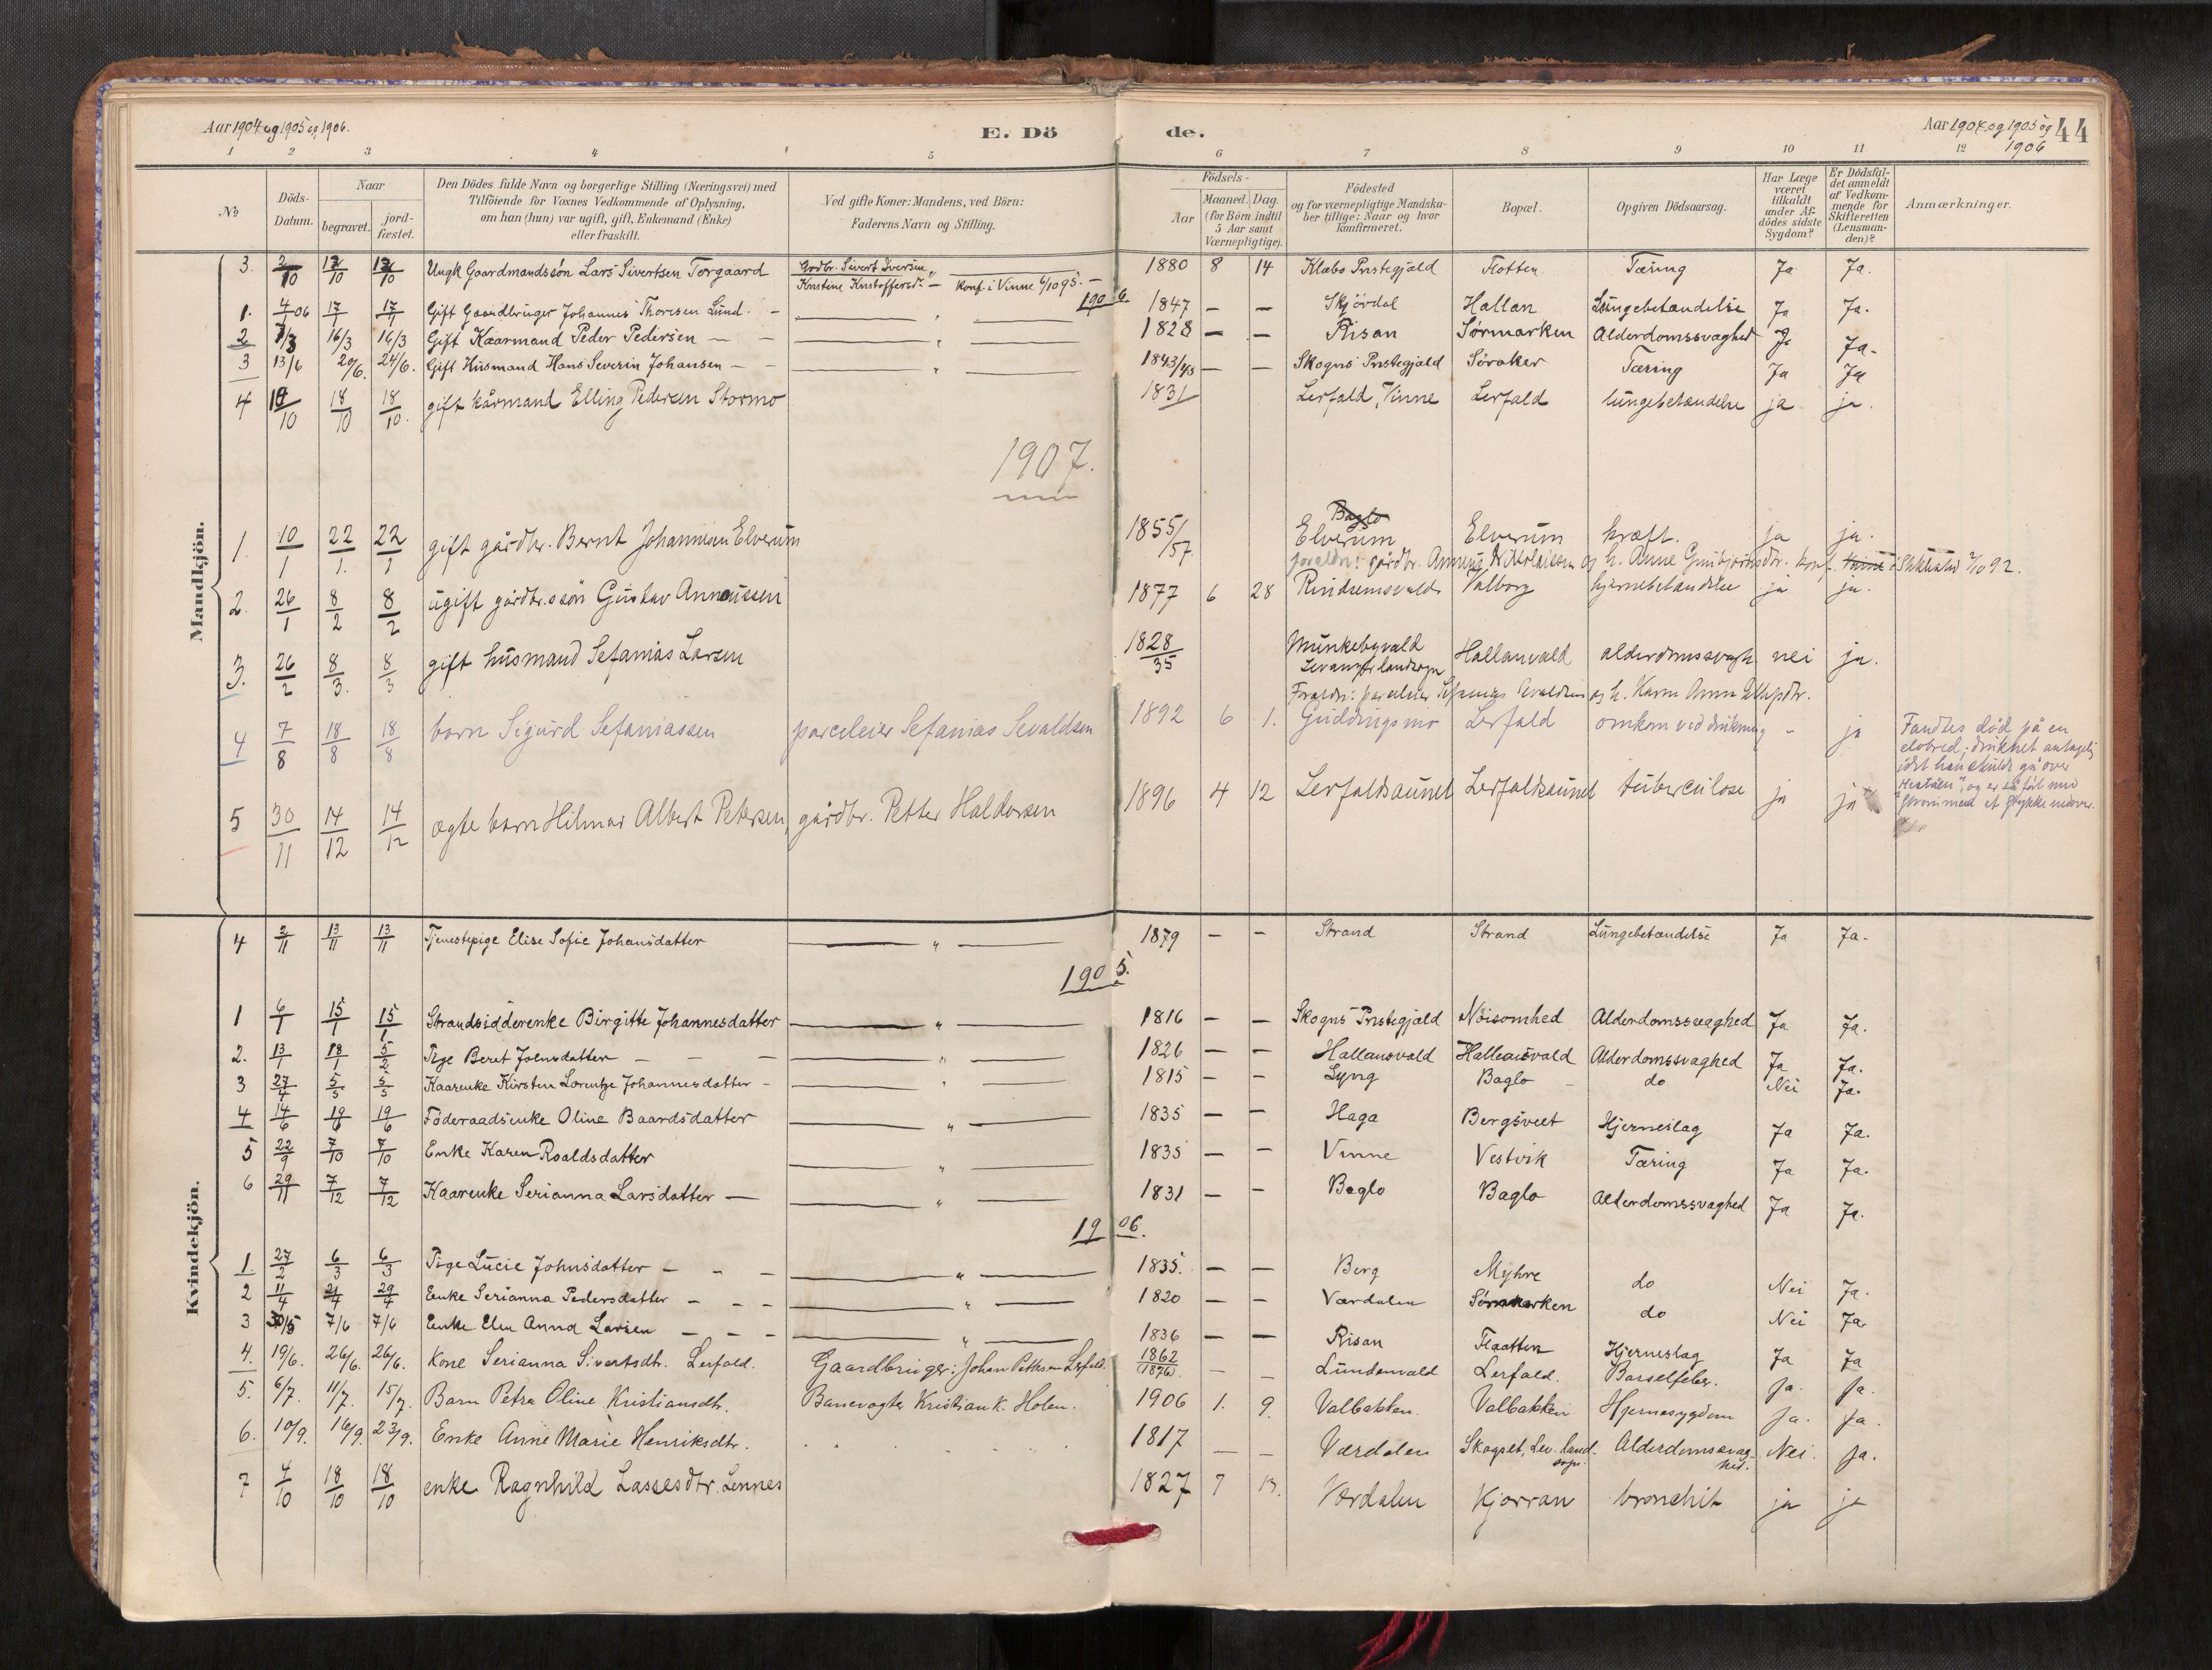 Aar 1904 og 1905 og 1906.
E. Dö de.
Aar 1904 og 1905 og 1906
44
1 2 3 4 5 6 7 8 9 10 11 12
No
Döds-Datum.
Naar
begravet. jord-fæstet.
Den Dödes fulde Navn og borgerlige Stilling (Næringsvei) med
Tilföiende for Voxnes Vedkommende af Oplysning,
om han (hun) var ugift, gift, Enkemand (Enke)
eller fraskilt.
Ved gifte Koner: Mandens, ved Börn:
Faderens Navn og Stilling.
Födsels-
Aar Maaned. Dag.
(for Börn indtil
5 Aar samt
Værnepligtige).
Födested
og for værnepligtige Mandska-
ber tillige: Naar og hvor
konfirmeret.
Bopæl.
Opgiven Dödsaarsag.
Har Læge
været
tilkaldt
under Af-
dödes sidste
Sygdom?
Er Dödsfal-
det anmeldt
af Vedkom-
mende for
Skifteretten
(Lensman-
den)?
Anmærkninger.
Mandkjön.
3. 2/10 12/10 12/10 Ungk. Gaardmandssön Lars Sivertsen Torgaard Grdbr. Sivert Iversen Kristine Kristoffersd. – konf. i Vinne 6/10 95. – 1880 8 14 Klæbo Prstegjæld Flotten Tæring Ja Ja.
1906.
1. 4/1 06 17/1 17/1 Gift Gaardbruger Johannes Thoresen Lund. – " – 1847 – – Skjördal Hallan Lungebetændelse Ja Ja.
2 7/3 16/3 16/3 Gift Kaarmand Peder Pedersen – " – 1828 – – Risan Sörmarken Alderdomssvaghed Ja Ja.
3 13/6 20/6. 24/6. Gift Husmand Hans Severin Johansen – " – 1843/43 – – Skogns Prstegjæld Söraker Tæring Ja Ja
4 10/10 18/10 18/10. gift kårmand Elling Pedersen Stormo 1831 Lerfald, Vinne Lerfald lungebetændelse ja ja.
1907.
Baglo
1. 10/1 22/1. 22/1 gift gårdbr. Bernt Johannesen Elverum 1855/57. Elverum Elverum kræft. ja ja.
2. 26/1 8/2 8/2 ugift gårdbr.ssön Gustav Annæussen 1877 6 28 Rindsemsvald Valborg hjernebetændelse ja ja.
3. 26/2 8/3. 8/3 gift husmand Sefanias Larsen 1828/35 Munkebyvald Levanger landsogn Hallanvald alderdomssvagh. nei ja.
4 7/8 18/8 18/8 barn Sigurd Sefaniassen parceleier Sefanias Sevaldsen 1892 6 1. Guddingsmo Lerfald omkom ved drukning – ja Fandtes död på en
elvbred; druknet antagelig
idet han skulde gå over
5 30/11 14/12 14/12 ægte barn Hilmar Albert Petersen, gårdbr. Petter Haldorsen 1896 4 12 Lerfaldsaunet Lerfaldsaunet tuberculose ja ja
Kvindekjön.
4 2/11 13/11 13/11 Tjenestepige Elise Sofie Johansdatter – " – 1879 – – Strand Strand Lungebetændelse Ja Ja.
1905.
1 6/1 15/1 15/1 Strandsidderenke Birgitte Johannesdatter – " – 1816 – – Skogns Prstegjæld Nöisomhed Alderdomssvaghed Ja Ja.
2. 13/1 18/1 5/2 Pige Beret Johnsdatter – " – 1826 – – Hallansvald Hallansvald Alderdomssvaghed Ja Ja.
3 27/4 5/5 5/5 Kaarenke Kirsten Lorentze Johannesdatter – " – 1815 – – Lyng Baglo – do Nei Ja.
4 14/6 19/6 19/6 Föderaadsenke Oline Baardsdatter – " – 1835 – – Haga Bergsveet Hjerneslag Ja Ja.
5 22/9 7/10 7/10 Enke Karen Roaldsdatter – " – 1835 – – Vinne Vestvik Tæring Ja Ja.
6 29/11 7/12 7/12 Kaarenke Serianna Larsdatter – " – 1831 – – Baglo Baglo Alderdomssvaghed Ja Ja.
1906.
1. 27/2 6/3 6/3 Pige Lucie Johnsdatter – " – 1835. – – Berg Myhre do Nei Ja.
2 11/4 21/4 29/4 Enke Serianna Pedersdatter – " – 1820 – – Værdalen Sörmarken do Nei Ja
3 30/5 7/6 7/6 Enke Elen Anna Larsen – " – 1836 – – Risan Flaatten Hjerneslag Ja Ja
4. 19/6. 26/6. 26/6. Kone Serianna Sivertsdtr. Lerfald. Gaardbruger: Johan Pettersen Lerfald. 1862 (1876). – – Lundenvald Lerfald. Barselfeber. Ja. Ja.
5. 6/7. 11/7. 15/7. Barn Petra Oline Kristiansdtr. Banevogter Kristian K. Holen. 1906 1. 9. Valbakken. Valbakken Hjernesygdom Ja. Ja.
6. 10/9. 16/9. 23/9. Enke Anne Marie Henriksdtr. 1817 – – Værdalen Skogset, Lev. land-sogn. Alderdomssvag-hed. Nei. Ja.
7 4/10 18/10 18/10 enke Ragnhild Lassesdtr. Lennes 1827 7 13. Værdalen Kjæran bronchit ja ja